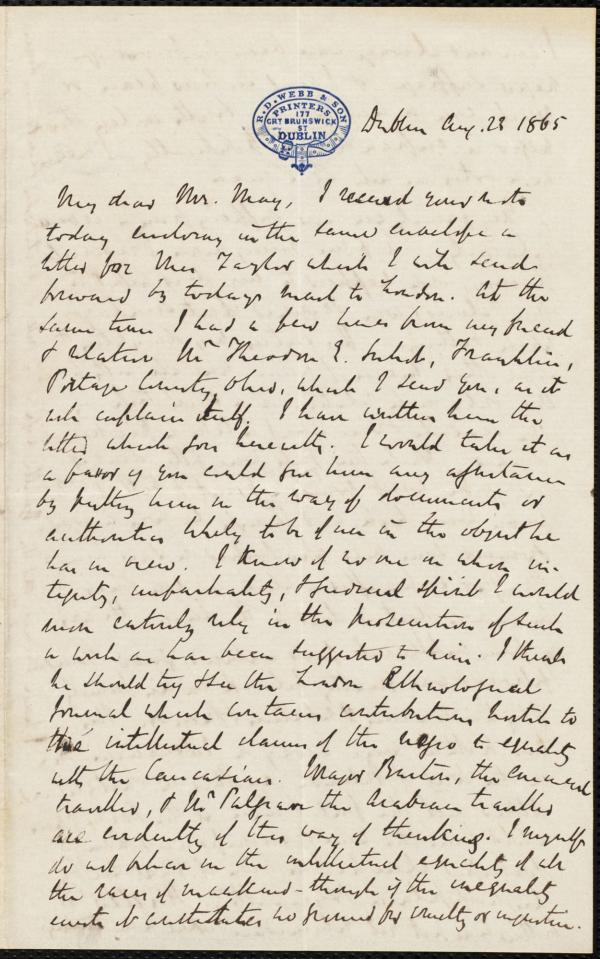 R. D. WEBB & SON
PRINTERS
177
GRT BRUNSWICK
ST
DUBLIN
Dublin Aug. 23 1865
My dear Mr. May, I received your note
today enclosing in the same envelope a
letter for Miss Taylor which I will send
forward by today's mail to London. At the
same time I had a few lines from my friend
& relative Mr Theodore E. Suliot, Franklin,
Portage County, Ohio, which I send you, as it
will explain itself. I have written him the
letter which goes herewith. I would take it as
a favor if you could give him any assistance
by putting him in the way of documents or
authorities likely to be of use in the object he
has in view. I know of no one on whose in-
tegrity, impartiality, & general spirit I would
more entirely rely in the prosecution of such
a work as has been suggested to him. I think
he should try & see the London Ethnological
Journal which contains contributions hostile to
the intellectual claims of the negro to equality
with the Caucasian. Major Burton, the
traveller, & Mr Palgrave the Arabian traveller
are evidently of this way of thinking. I myself
do not believe in the intellectual equality of all
the races of mankind - though if the inequality
exists it constitutes no ground for cruelty or injustice.